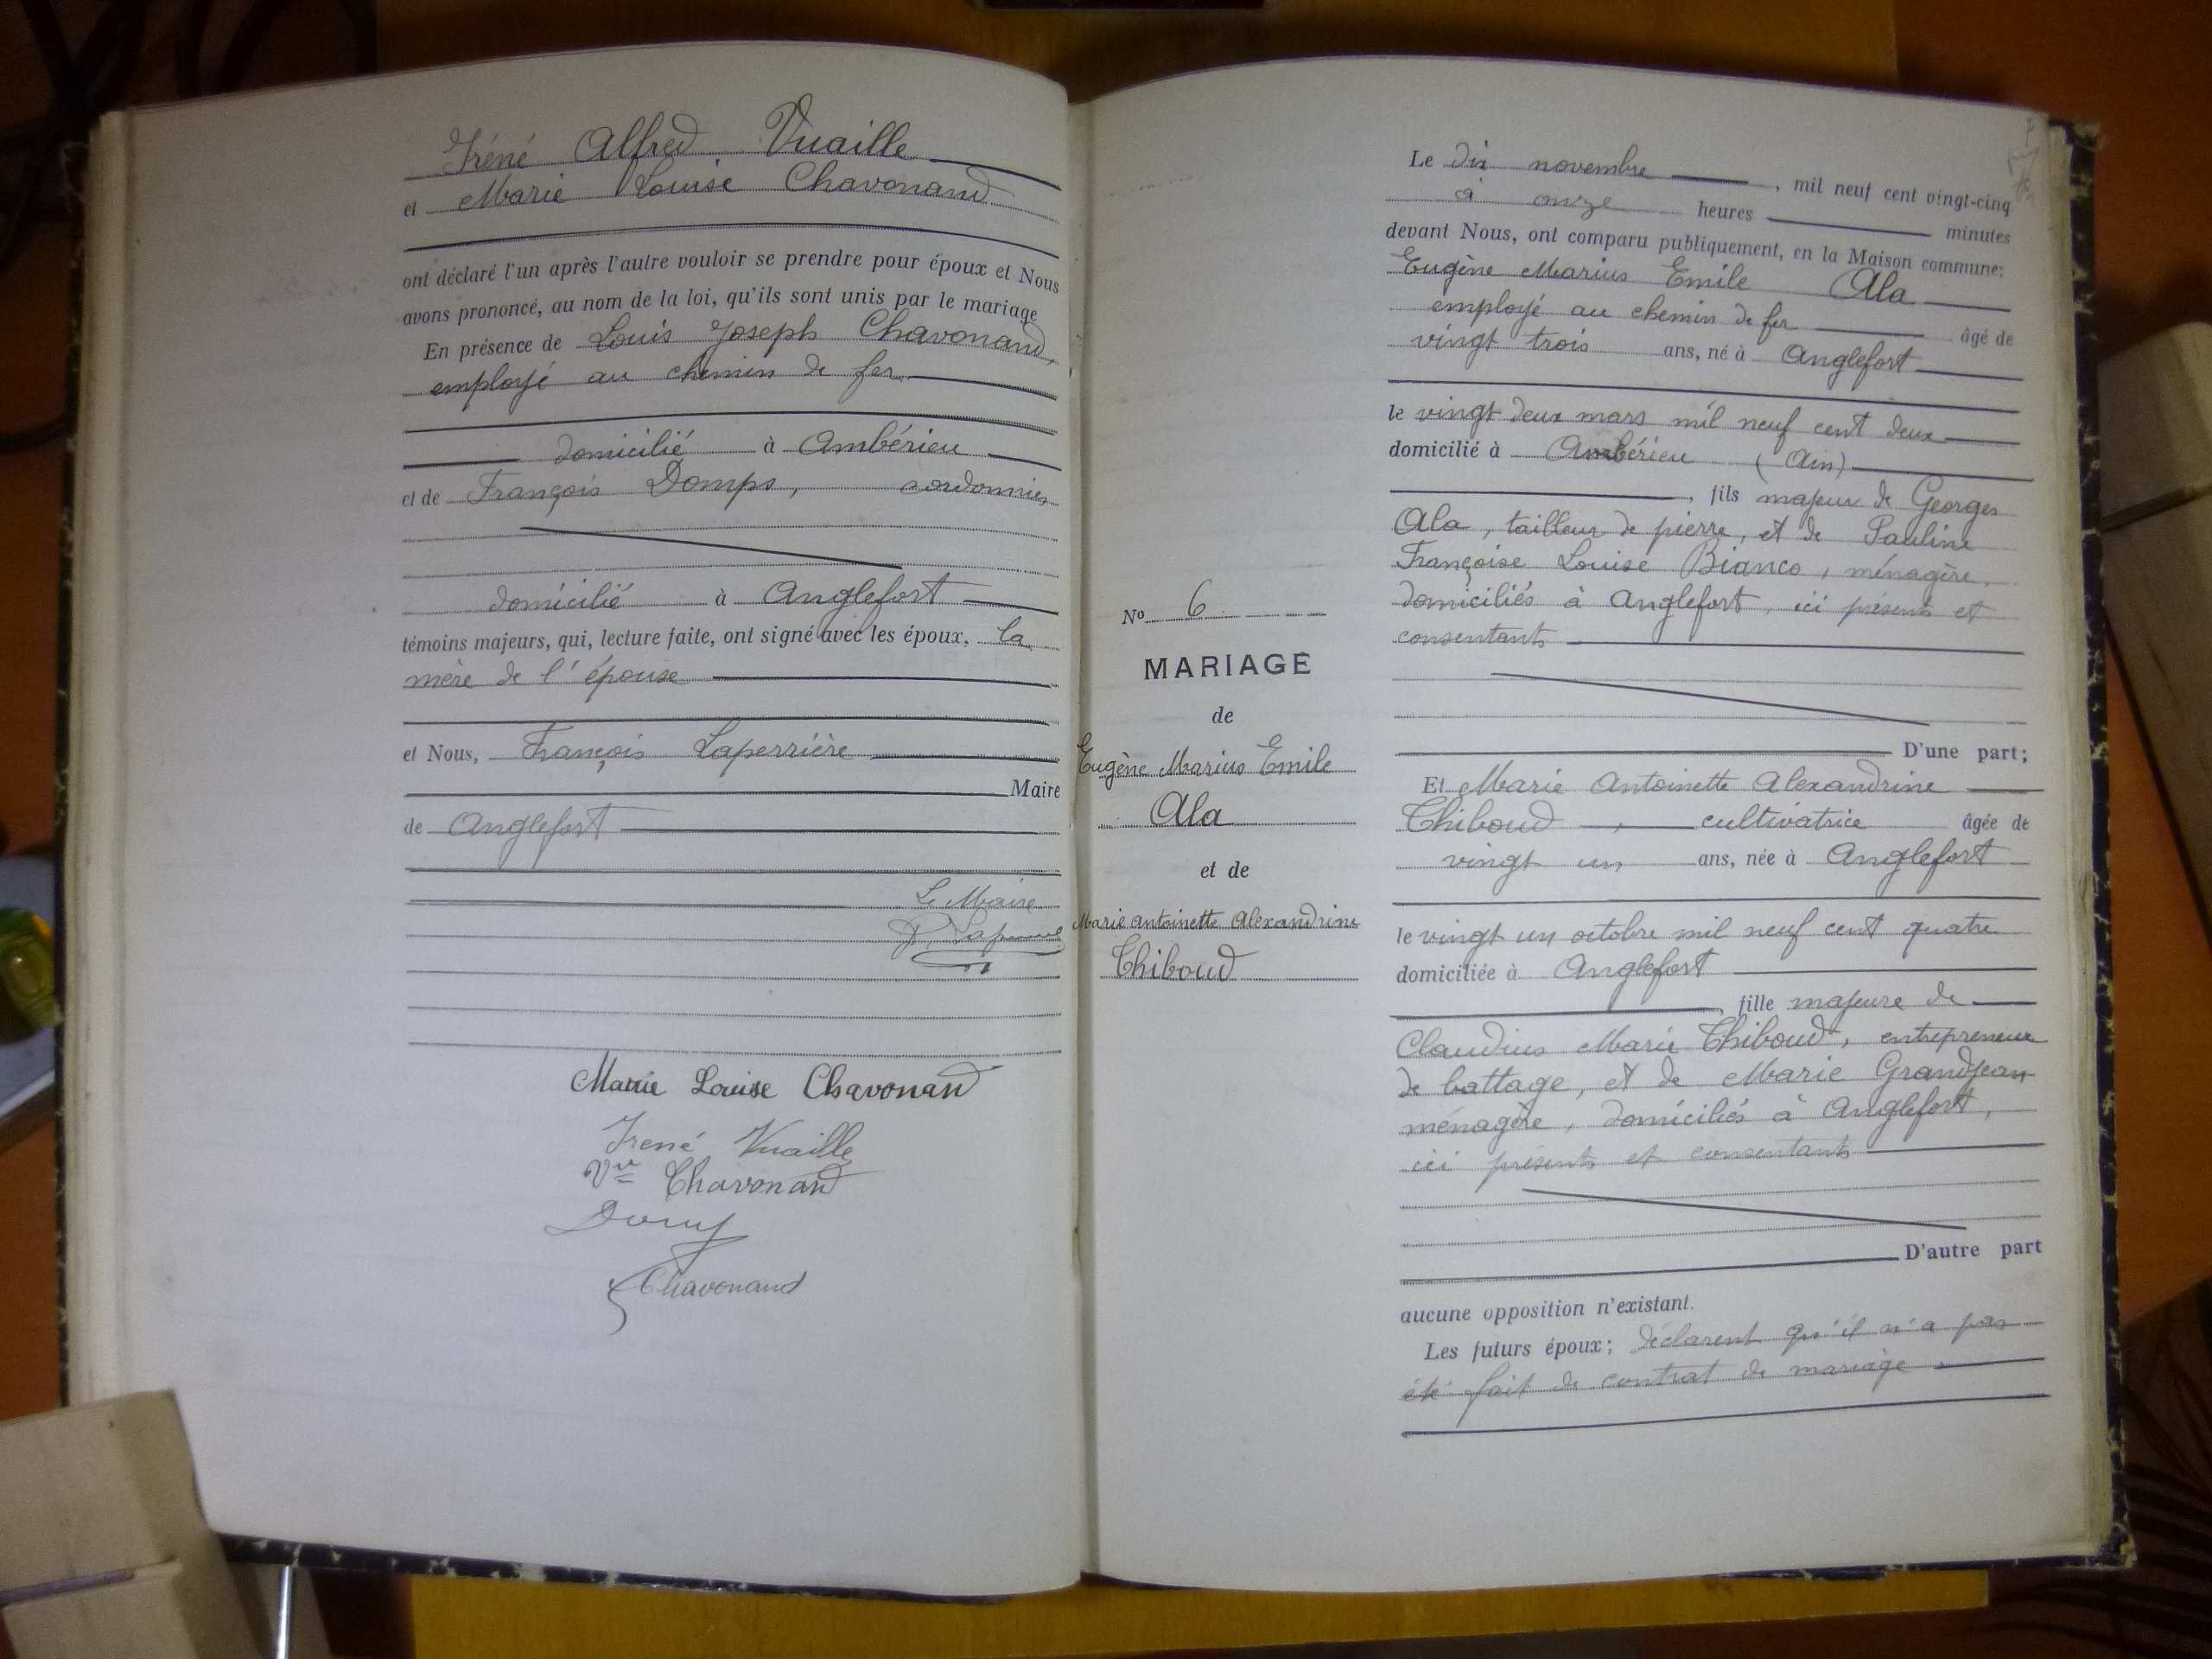 Iréné Alfred Vuaille
et Marie Louise Chavonand
ont déclaré l'un après l'autre vouloir se prendre pour époux et Nous
avons prononcé, au nom de la loi, qu'ils sont unis par le mariage
En présence de Louis Joseph Chavonand,
employé au chemin de fer
domicilié à Ambérieu
et de François Domps, cordonnier
domicilié à Anglefort
témoins majeurs, qui, lecture faite, ont signé avec les époux, la
mère de l'épouse
et Nous, François Laperrière
Maire
de Anglefort
Le Maire
Marie Louise Chavonand
Irené Vuaille
Vve Chavonand
Chavonand
No 6
MARIAGE
de
Eugène Marius Emile
Ala
et de
Marie Antoinette Alexandrine
Thiboud
Le dix novembre, mil neuf cent vingt-cinq
à onze heures minutes
devant Nous, ont comparu publiquement, en la Maison commune:
Eugène Marius Emile Ala
employé au chemin de fer âgé de
vingt trois ans, né à Anglefort
le vingt deux mars mil neuf cent deux
domicilié à Ambérieu (Ain)
, fils majeur de Georges
Ala, tailleur de pierre, et de Pauline
Françoise Louise Bianco, ménagère,
domiciliés à Anglefort, ici présents et
consentants
D'une part;
Et Marie Antoinette Alexandrine
Thiboud, cultivatrice âgée de
vingt un ans, née à Anglefort
le vingt un octobre mil neuf cent quatre
domiciliée à Anglefort
, fille majeure de
Claudius Marie Thiboud, entrepreneur
de battage, et de Marie Grandjean
ménagère, domiciliés à Anglefort,
ici présents et consentants
D'autre part
aucune opposition n'existant.
Les futurs époux; déclarent qu'il n'a pas
été fait de contrat de mariage